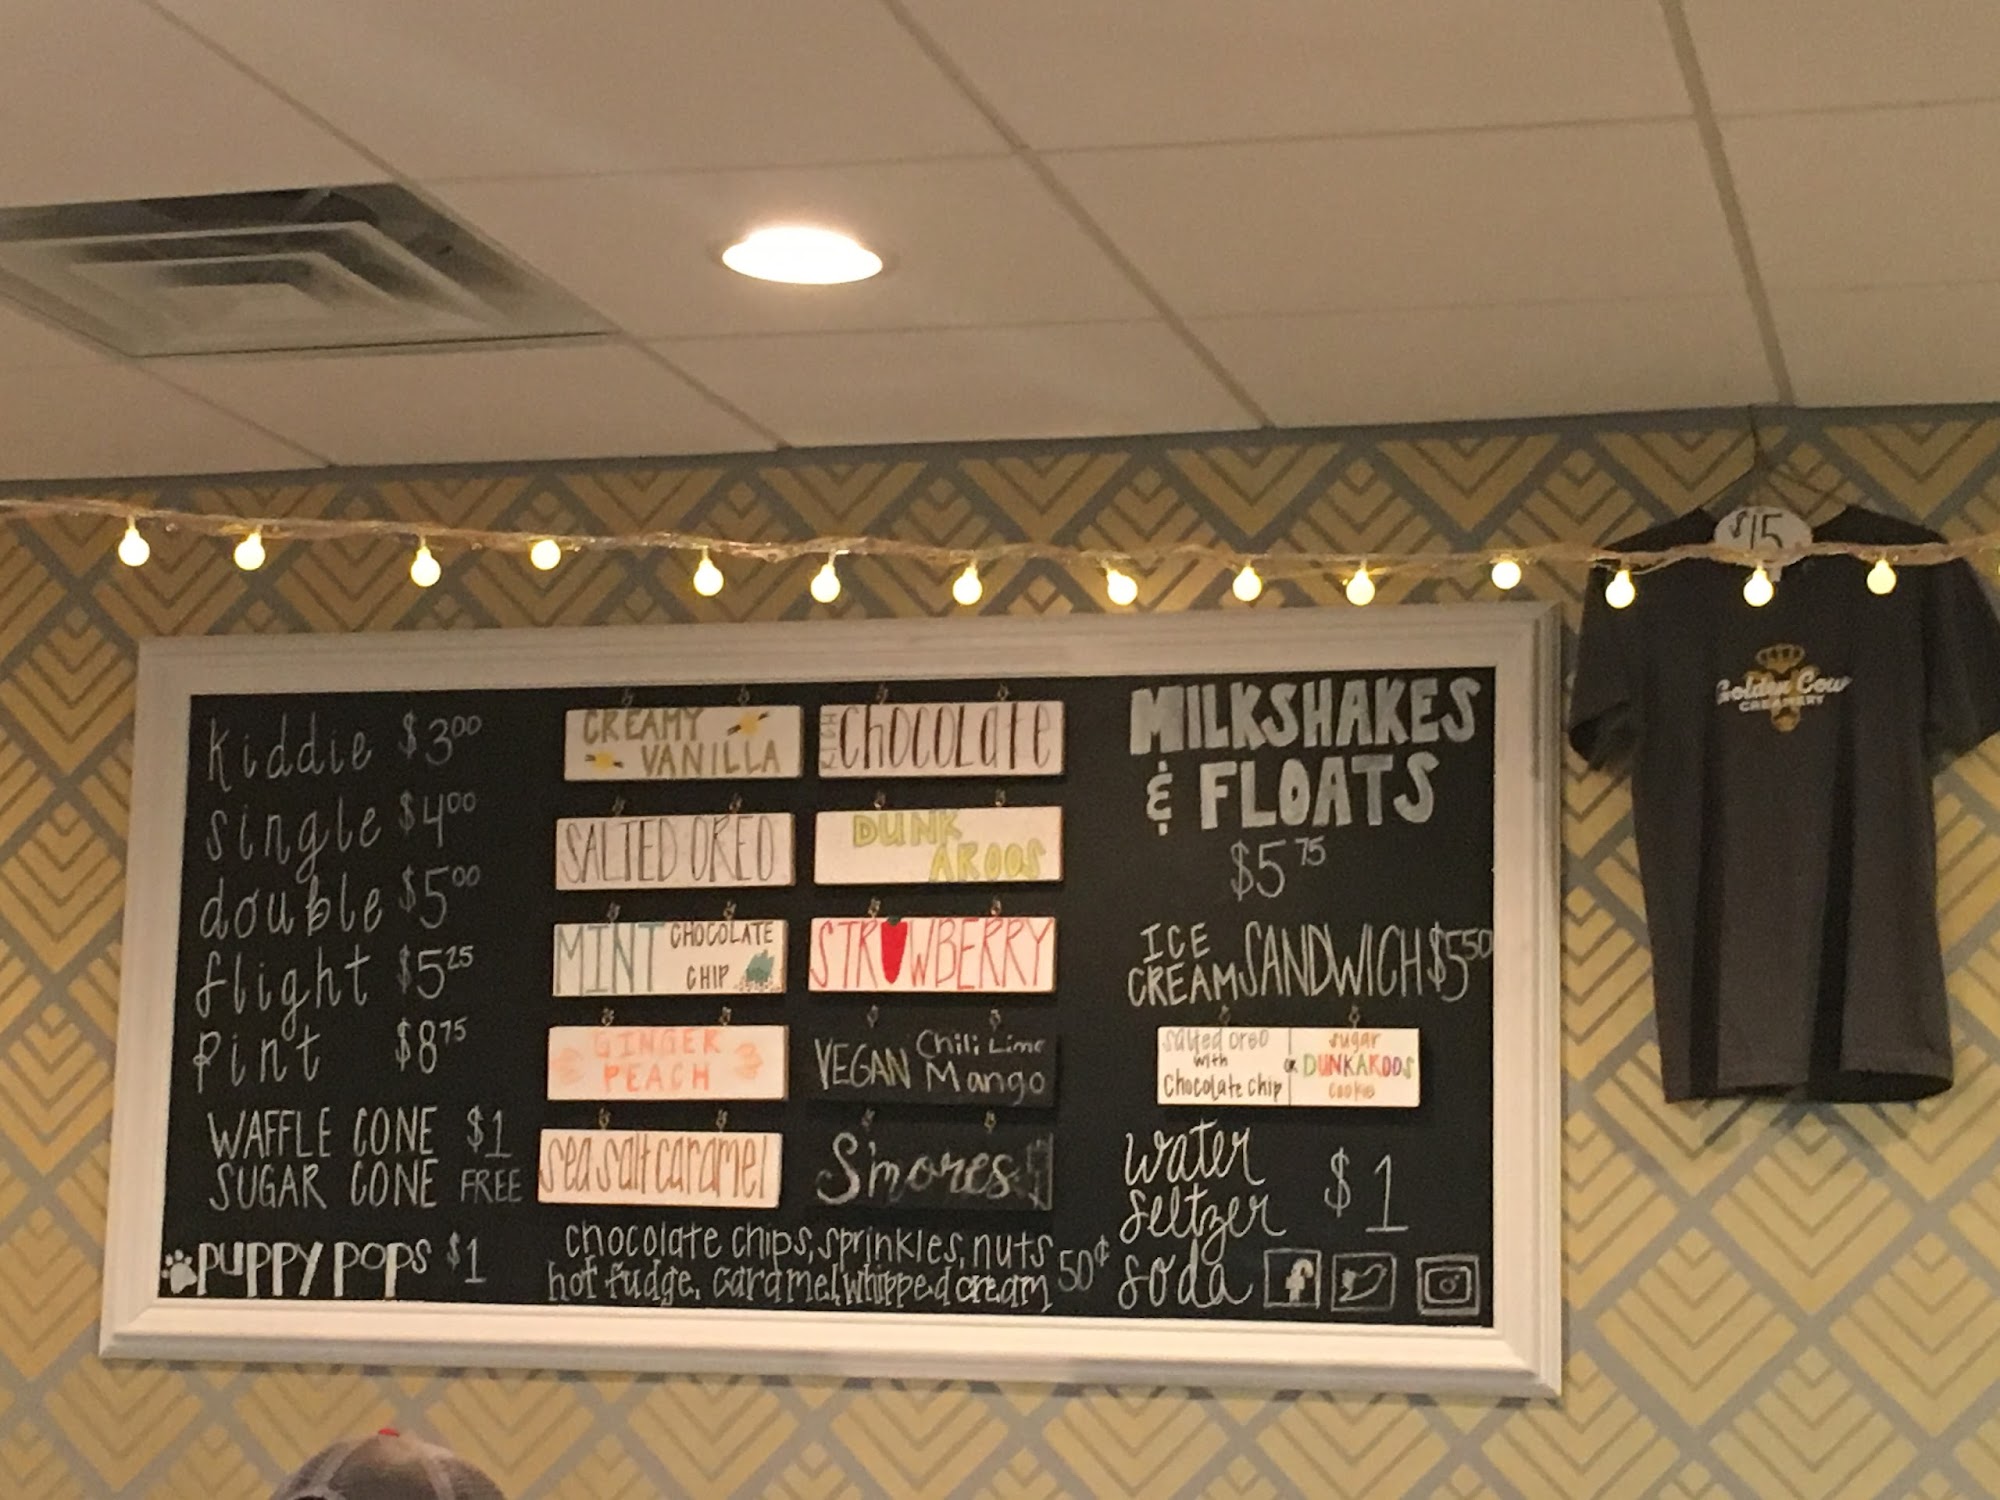 kiddie $3.00
single $4.00
double $5.00
flight $5.25
Pint $8.75
WAFFLE CONE $1
SUGAR CONE FREE
PUPPY POPS $1
CREAMY
VANILLA
SALTED OREO
MINT CHOCOLATE
CHIP
GINGER
PEACH
sea salt caramel
chocolate
DUNK
AROOS
STRAWBERRY
VEGAN Chili Lime
Mango
S'mores
chocolate chips, sprinkles, nuts
hot fudge, caramel, whipped cream 50¢
MILKSHAKES
& FLOATS
$5.75
ICE
CREAM SANDWICH $5.50
salted oreo
with
chocolate chip
or
sugar
DUNKAROOS
cookie
water
seltzer $1
soda
f
$15
Golden Cow
CREAMERY